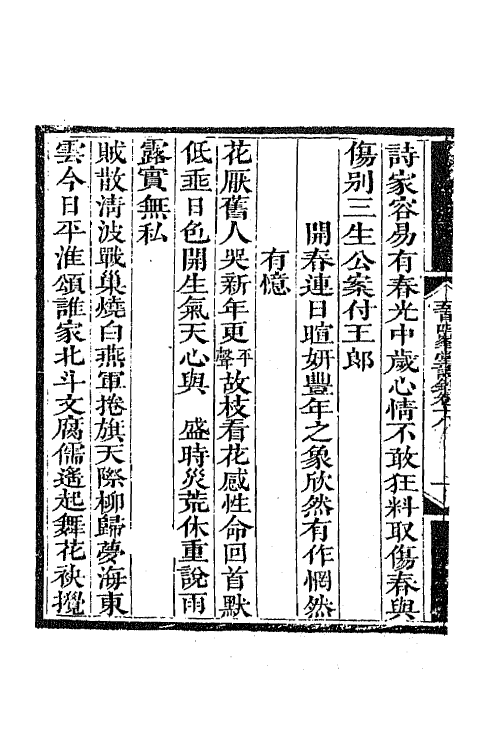 詩家容易有春光中歲心情不敢狂料取傷春與
傷别三生公案付王郎
開春連日暄妍豐年之象欣然有作惘然
有憶
花厭舊人哭新年更平聲故枝看花感性命回首默
低垂日色開生氣天心與　盛時災荒休重說雨
露實無私
賊散淸波戰巢燒白燕軍捲旗天際柳歸夢海東
雲今日平淮頌誰家北斗文腐儒遙起舞花袂攪